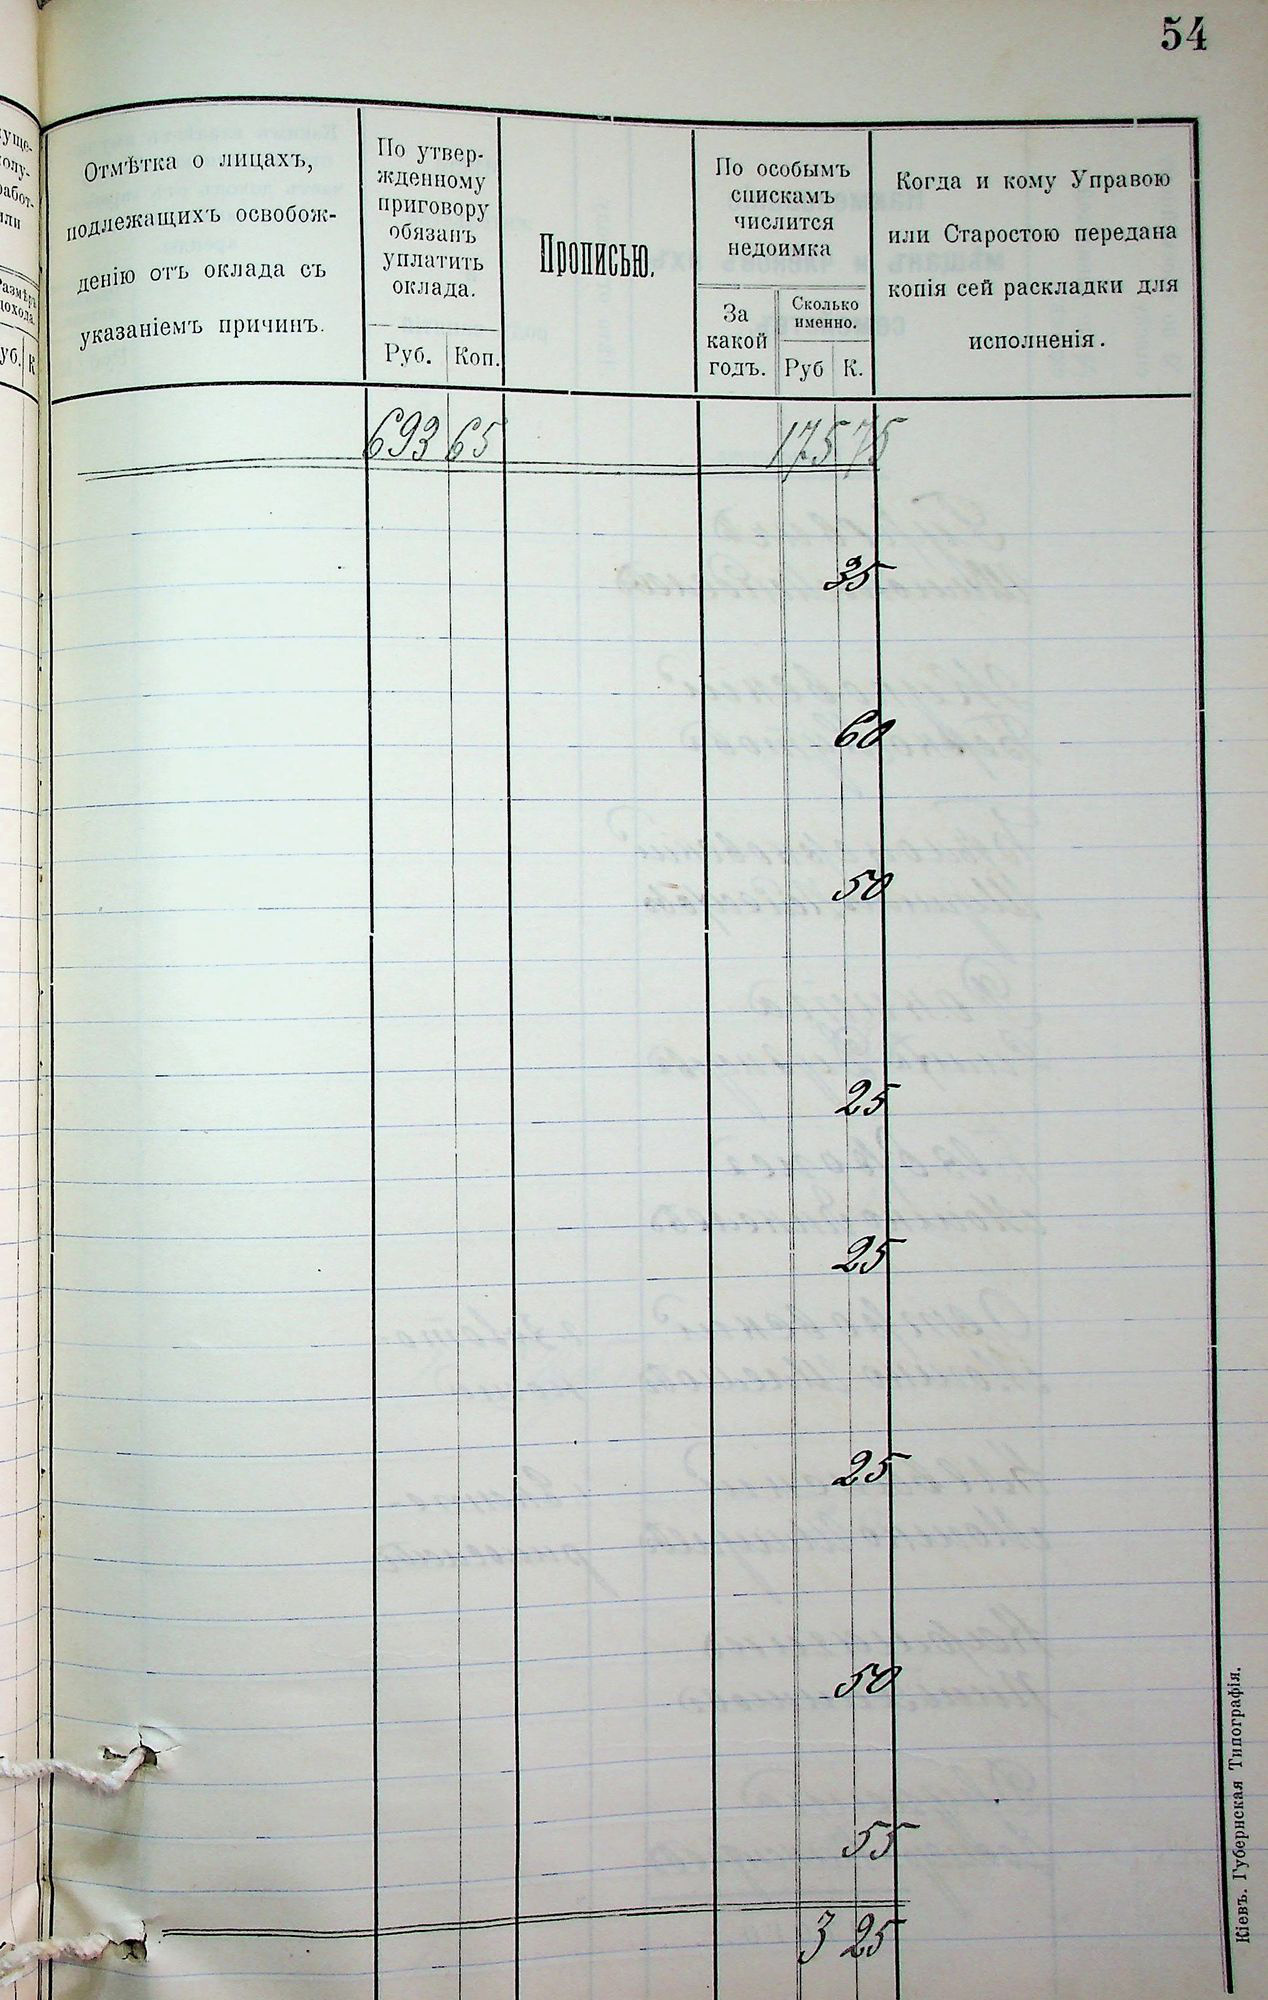 54
Отмѣтка о лицахъ,
подлежащихъ освобож-
денію отъ оклада съ
указаніемъ причинъ.
По утвер-
жденному
приговору
обязанъ
уплатить
оклада.
Руб. Коп.
Прописью.
По особымъ
спискамъ
числится
недоимка
За
какой
годъ.
Сколько
именно.
Руб К.
Когда и кому Управою
или Старостою передана
копія сей раскладки для
исполненія.
693 65 175 75
35
60
50
25
25
25
50
55
3 25
Кіевъ. Губернская Типографія.